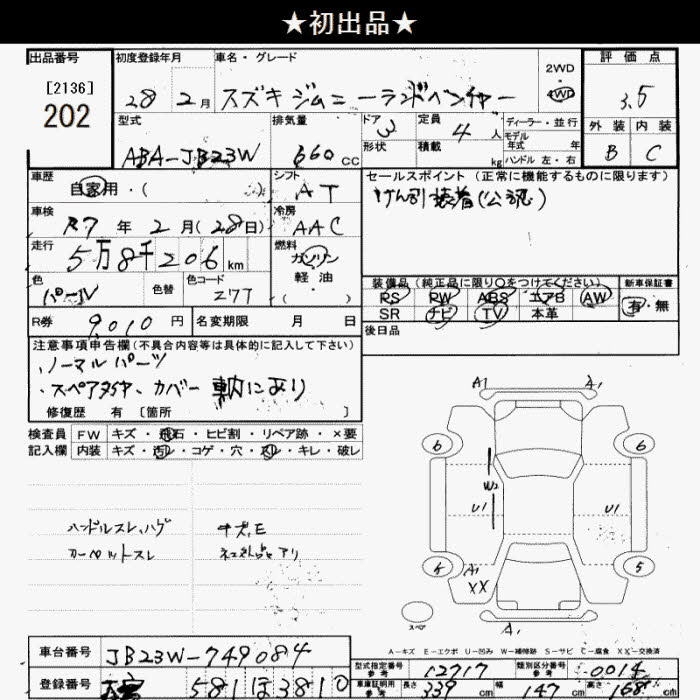 ★初出品★
出品番号
[2136]
202
初度登録年月
28年 2月
車名・グレード
スズキ ジムニーランドベンチャー
2WD
・
4WD
評価点
3.5
外装 内装
B C
型式
ABA-JB23W
排気量
660cc
ドア 3
形状
定員 4人
積載 kg
ディーラー・並行
モデル
年式 年
ハンドル 左・右
車歴
自家用・( )
シフト
AT
車検
R7年2月(28日)
冷房
AAC
走行
5万8千206km
燃料
ガソリン
軽油・
( )
色
パール
色替
色コード
Z7T
R券 9,010円
名変期限 月 日
セールスポイント(正常に機能するものに限ります)
けん引装着(公認)
装備品(純正品に限り○をつけてください)
新車保証書
RS RW ABS エアB AW
SR ナビ TV 本革
有・無
後日品
注意事項申告欄(不具合内容等は具体的に記入して下さい)
・ノーマルパーツ
・スペアタイヤ、カバー 車内にあり
修復歴 有 [箇所 ]
検査員 FW キズ・飛石・ヒビ割・リペア跡・×要
記入欄 内装 キズ・汚レ・コゲ・穴・スレ・キレ・破レ
ハンドルスレ、ハゲ キズ,E
カーペットスレ
A1 A1
6 6
W2
U1 U1
5 5
A1
XX
スペア
A1
A-キズ E-エクボ U-凹み W-補修跡 S-サビ C-腐食 XX-交換済
車台番号 JB23W-749084
登録番号 581 ほ 3810
型式指定番号
参考
12717
類別区分番号
参考
0014
車庫証明用
参考
長さ 339cm 幅 147cm 高さ 168cm